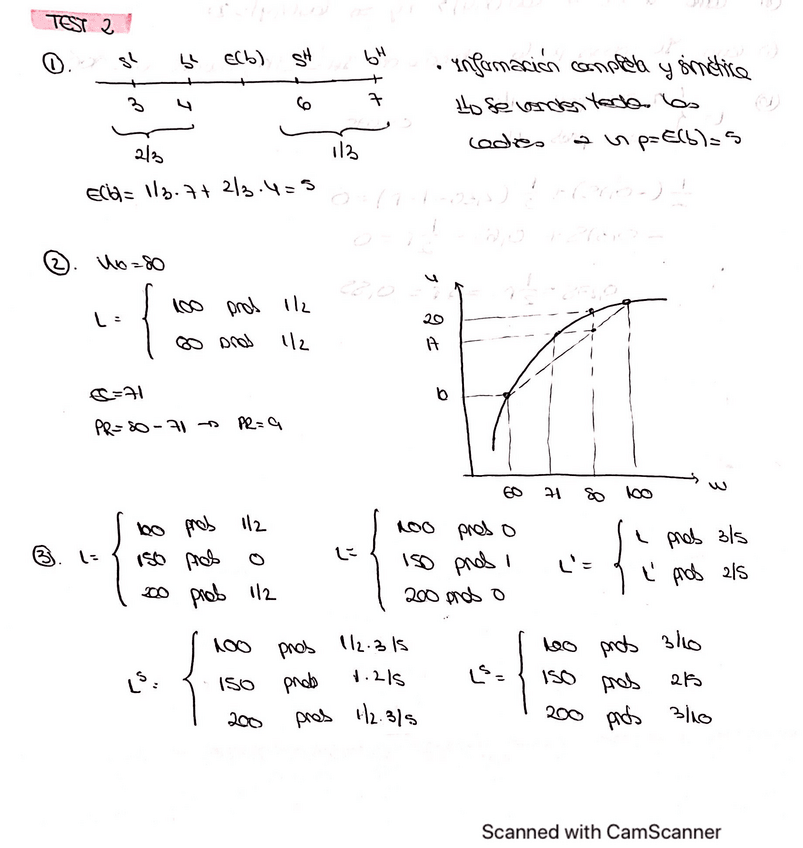 TEST 2
①. s^L b^L E(b) s^H b^H
3 4 6 7
2/3 1/3
E(b) = 1/3 · 7 + 2/3 · 4 = 5
· Información completa y simétrica
No se venden todos los
coches → p = E(b) = 5
②. W0 = 80
L = { 100 prob 1/2
60 prob 1/2
EC = 71
PR = 80 - 71 → PR = 9
u
20
17
60 71 80 100 w
③. L = { 100 prob 1/2
150 prob 0
200 prob 1/2
L = { 100 prob 0
150 prob 1
200 prob 0
L' = { L prob 3/5
L' prob 2/5
L^S = { 100 prob 1/2 · 3/5
150 prob 1 · 2/5
200 prob 1/2 · 3/5
L^S = { 100 prob 3/10
150 prob 2/5
200 prob 3/10
Scanned with CamScanner